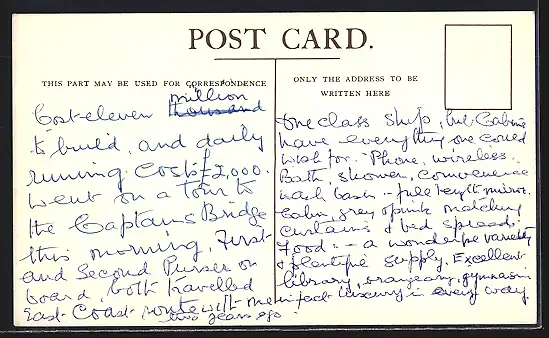 POST CARD.
THIS PART MAY BE USED FOR CORRESPONDENCE
ONLY THE ADDRESS TO BE
WRITTEN HERE
million
Cost eleven thousand
to build, and daily
running cost £2,000.
Went on a tour to
the Captains Bridge
this morning, First
and Second Purser on
board, both travelled
East Coast route with me
two years ago.
One class ship, but Cabins
have everything one could
wish for. Phone, wireless.
Bath, shower, Convenience
wash basin - full length mirror.
Cabin, grey & pink matching
curtains & bed spread.
Food :- a wonderful variety
& plentiful supply. Excellent
library, orangeary, gymnasium
in fact luxury in every way.